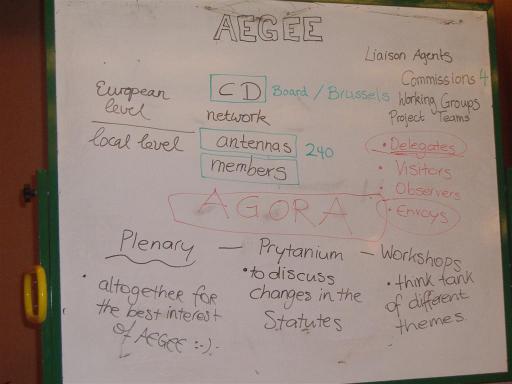 AEGEE
Liaison Agents
European level
CD Board / Brussels
Commissions 4
Working Groups
Project Teams
network
local level
antennas 240
members
• Delegates
• Visitors
• Observers
• Envoys
AGORA
Plenary — Prytanium — Workshops
• altogether for
the best interest
of AEGEE :-)
• to discuss
changes in the
Statutes
• think tank
of different
themes